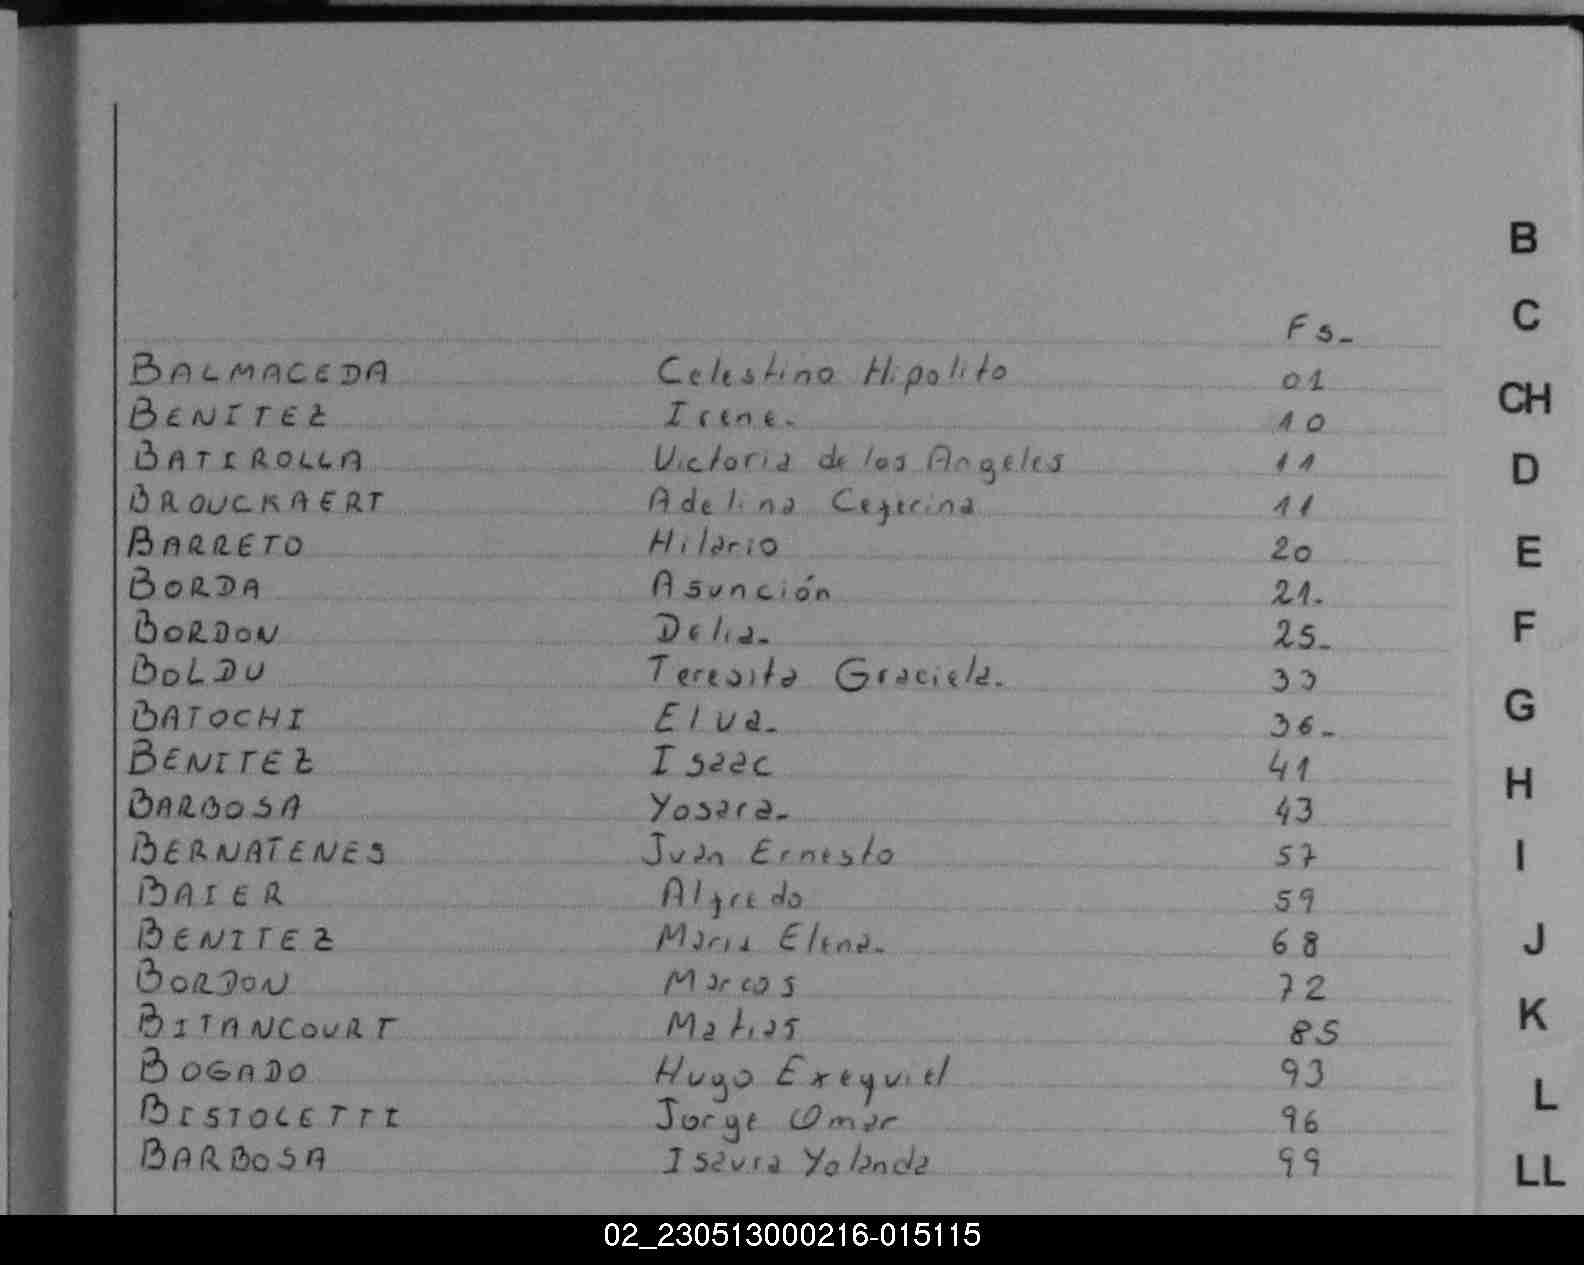 Fs_
BALMACEDA Celestino Hipolito 01
BENITEZ Irene. 10
BATIROLLA Victoria de los Angeles 11
BROUCKAERT Adelina Ceferina 11
BARRETO Hilario 20
BORDA Asunción 21.
BORDON Delia. 25_
BOLDU Teresita Graciela. 33
BATOCHI Elva. 36_
BENITEZ Isaac 41
BARBOSA Yosara. 43
BERNATENES Juan Ernesto 57
BAIER Alfredo 59
BENITEZ Maria Elena. 68
BORDON Marcos 72
BITANCOURT Matias 85
BOGADO Hugo Exequiel 93
BISTOLETTI Jorge Omar 96
BARBOSA Isaura Yolanda 99
B
C
CH
D
E
F
G
H
I
J
K
L
LL
02_230513000216-015115